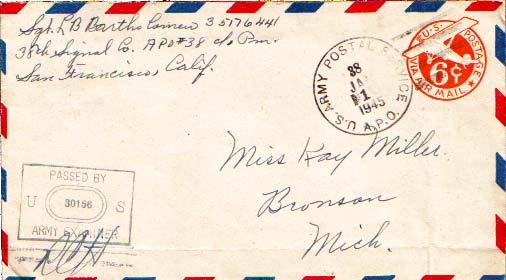 Sgt. L B Bartholomew 35176441
38th Signal Co. APO#38 c/o Pm.
San Francisco, Calif.
U.S. ARMY POSTAL SERVICE
38
JA
1
1945
A.P.O.
U.S. POSTAGE
6¢
VIA AIR MAIL
Miss Kay Miller
Bronson
Mich.
PASSED BY
U 30166 S
ARMY EXAMINER